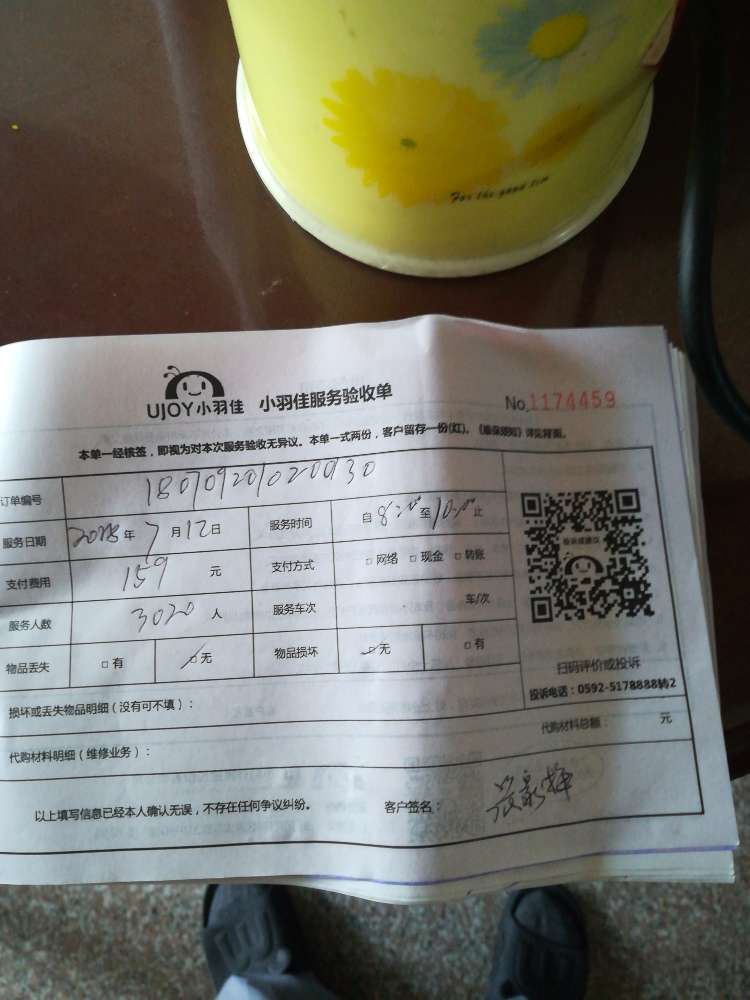 For the good tim
UJOY小羽佳 小羽佳服务验收单 No.1174459
本单一经核签，即视为对本次服务验收无异议。本单一式两份，客户留存一份(红)。《维保须知》详见背面。
订单编号 180709201020030
服务日期 2018年7月12日 服务时间 自8:00至10:00止
支付费用 159元 支付方式 □网络 □现金 □转账
服务人数 3020人 服务车次 车/次
物品丢失 □有 □无 物品损坏 □无 □有
扫码评价或投诉
投诉电话：0592-5178888转2
损坏或丢失物品明细（没有可不填）：
代购材料明细（维修业务）： 代购材料总额： 元
以上填写信息已经本人确认无误，不存在任何争议纠纷。 客户签名：